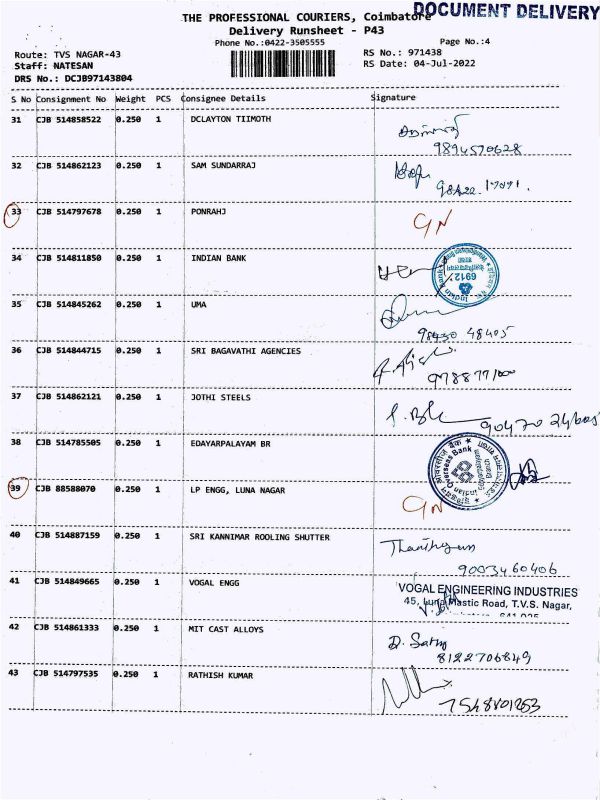 DOCUMENT DELIVERY
THE PROFESSIONAL COURIERS, Coimbatore
Delivery Runsheet - P43
Phone No.:0422-3505555
Page No.:4
Route: TVS NAGAR-43
RS No.: 971438
Staff: NATESAN
RS Date: 04-Jul-2022
DRS No.: DCJB97143804
S No Consignment No Weight PCS Consignee Details Signature
31 CJB 514858522 0.250 1 DCLAYTON TIIMOTH
9894570628
32 CJB 514862123 0.250 1 SAM SUNDARRAJ
33 CJB 514797678 0.250 1 PONRAHJ
GN
34 CJB 514811850 0.250 1 INDIAN BANK
35 CJB 514845262 0.250 1 UMA
98430 48405
36 CJB 514844715 0.250 1 SRI BAGAVATHI AGENCIES
37 CJB 514862121 0.250 1 JOTHI STEELS
38 CJB 514785505 0.250 1 EDAYARPALAYAM BR
39 CJB 88588070 0.250 1 LP ENGG, LUNA NAGAR
GN
40 CJB 514887159 0.250 1 SRI KANNIMAR ROOLING SHUTTER
9003460406
41 CJB 514849665 0.250 1 VOGAL ENGG
VOGAL ENGINEERING INDUSTRIES
45, Luna Mastic Road, T.V.S. Nagar,
42 CJB 514861333 0.250 1 MIT CAST ALLOYS
D. Sathy
8122706849
43 CJB 514797535 0.250 1 RATHISH KUMAR